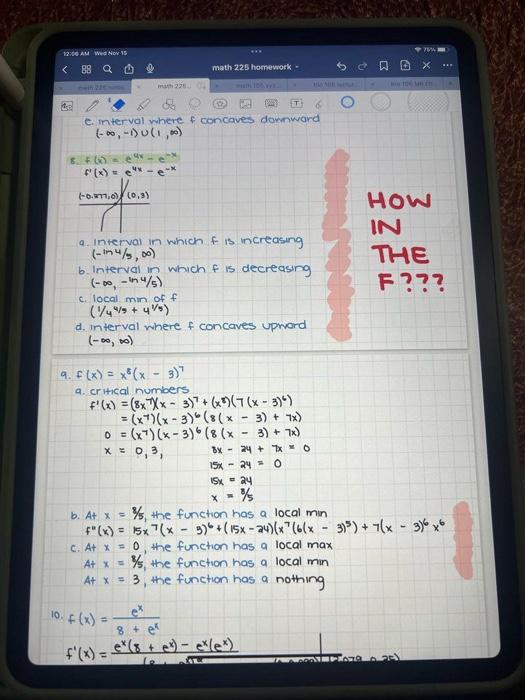 12:06 AM Wed Nov 15
75%
math 225 homework
math 225 notes
math 225...
e. interval where f concaves downward
(-∞, -1) ∪ (1, ∞)
8. f(x) = e^4x - e^-x
f'(x) = e^4x - e^-x
(-0.277,0) (0,3)
a. interval in which f is increasing
(-ln 4/5, ∞)
b. interval in which f is decreasing
(-∞, -ln 4/5)
c. local min of f
(1/4^4/5 + 4^1/5)
d. interval where f concaves upward
(-∞, ∞)
HOW
IN
THE
F???
9. f(x) = x^8(x - 3)^7
a. critical numbers
f'(x) = (8x^7)(x - 3)^7 + (x^8)(7(x - 3)^6)
= (x^7)(x - 3)^6 (8(x - 3) + 7x)
0 = (x^7)(x - 3)^6 (8(x - 3) + 7x)
x = 0, 3, 8x - 24 + 7x = 0
15x - 24 = 0
15x = 24
x = 8/5
b. At x = 8/5, the function has a local min
f"(x) = 15x^7(x - 3)^6 + (15x - 24)(x^7(6(x - 3)^5) + 7(x - 3)^6 x^6
c. At x = 0, the function has a local max
At x = 8/5, the function has a local min
At x = 3, the function has a nothing
10. f(x) = e^x / 8 + e^x
f'(x) = e^x(8 + e^x) - e^x(e^x)